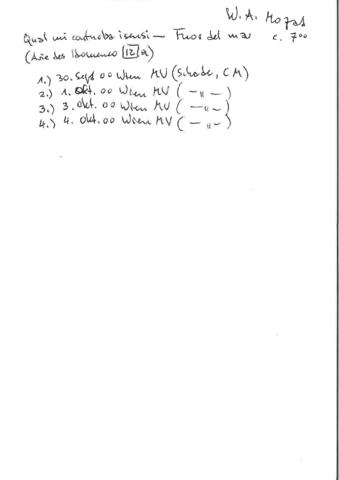 W. A. Mozart
Qual mi conturba i sensi — Fuor del mar c. 7⁰⁰
(Arie des Idomeneo 12 a)
1.) 30. Sept 00 Wien MV (Schade, CM)
2.) 1. Okt. 00 Wien MV ( — " — )
3.) 3. Okt. 00 Wien MV ( — " — )
4.) 4. Okt. 00 Wien MV ( — " — )